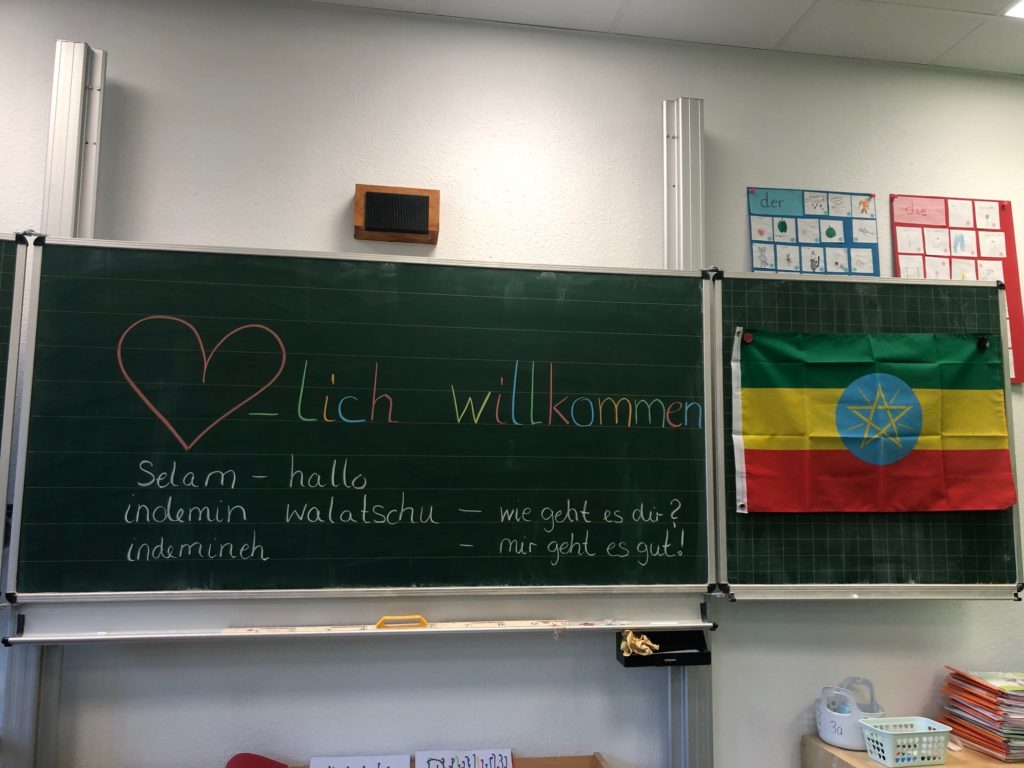 -lich willkommen
Selam - hallo
indemin walatschu - wie geht es dir?
indemineh - mir geht es gut!
der
die
3a